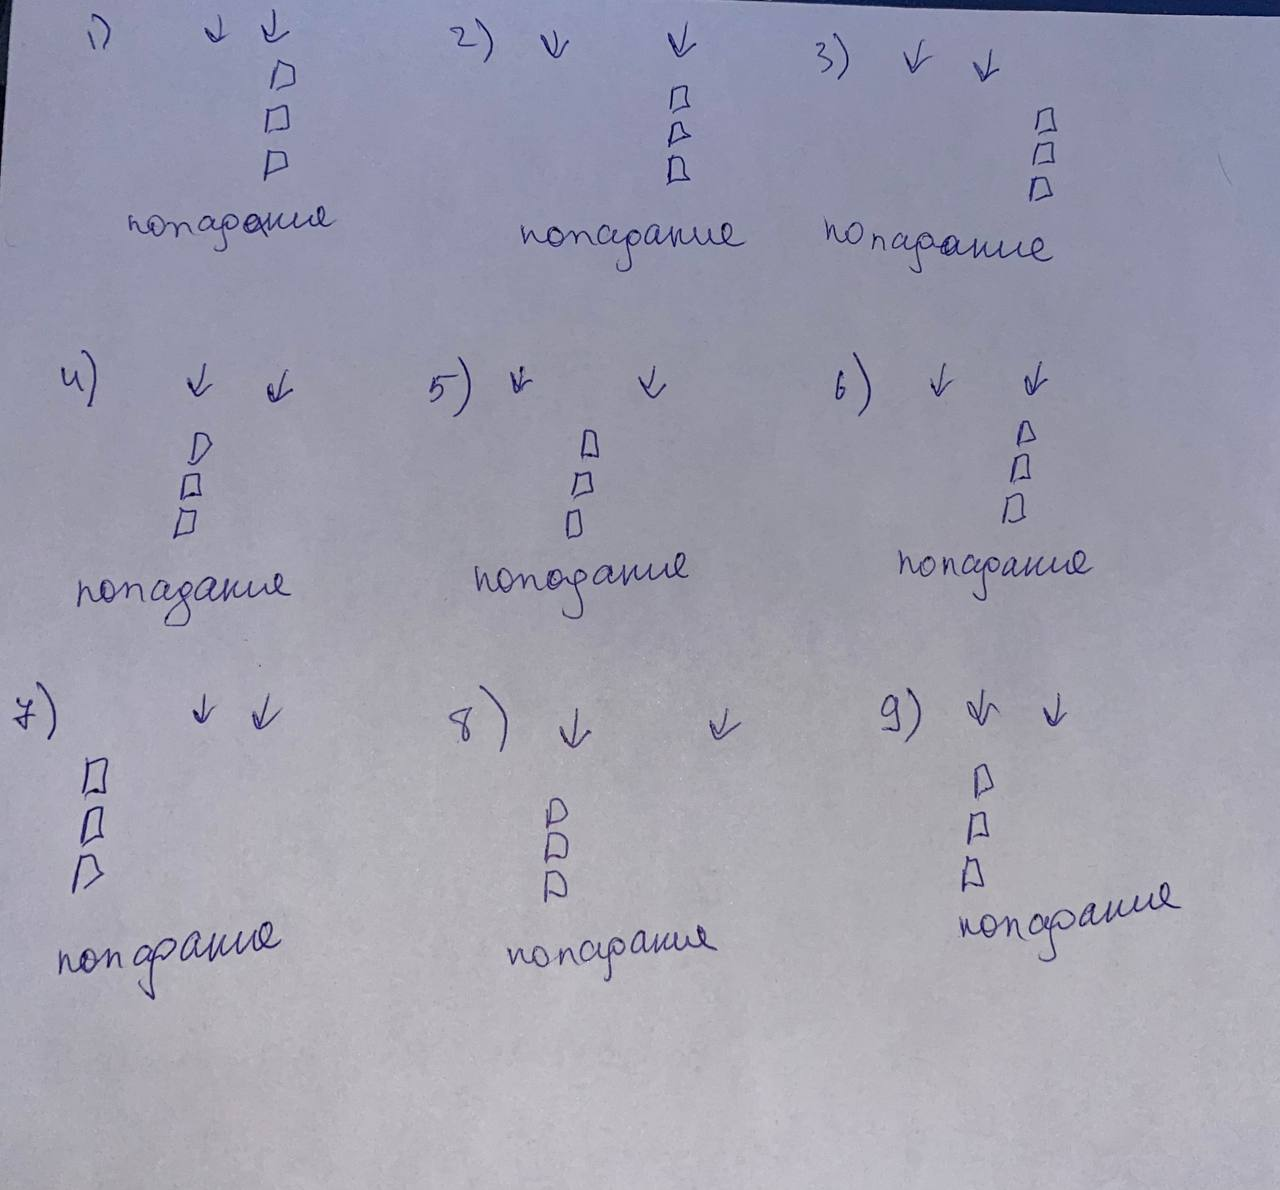 1) ↓ ↓
попадание
2) ↓ ↓
попадание
3) ↓ ↓
попадание
4) ↓ ↓
попадание
5) ↓ ↓
попадание
6) ↓ ↓
попадание
7) ↓ ↓
попадание
8) ↓ ↓
попадание
9) ↓ ↓
попадание